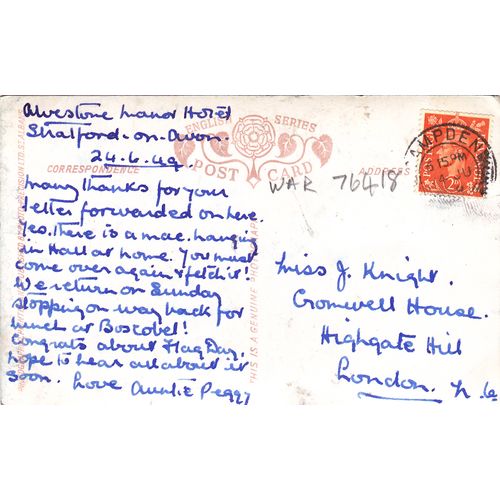 Alvestone Manor Hotel
Stratford-on-Avon.
24.6.49.
Many thanks for your
letter forwarded on here.
Yes, there is a mac. hanging
in Hall at home. You must
come over again & fetch it!
We return on Sunday
stopping on way back for
lunch at Boscobel!
Congrats about Flag Day,
hope to hear all about it
soon. Love Auntie Peggy
ENGLISH SERIES
POST CARD
CORRESPONDENCE
ADDRESS
WAR 76418
THIS IS A GENUINE PHOTOGRAPH
CAMPDEN
15 PM
Miss J. Knight.
Cromwell House.
Highgate Hill
London. N. 6